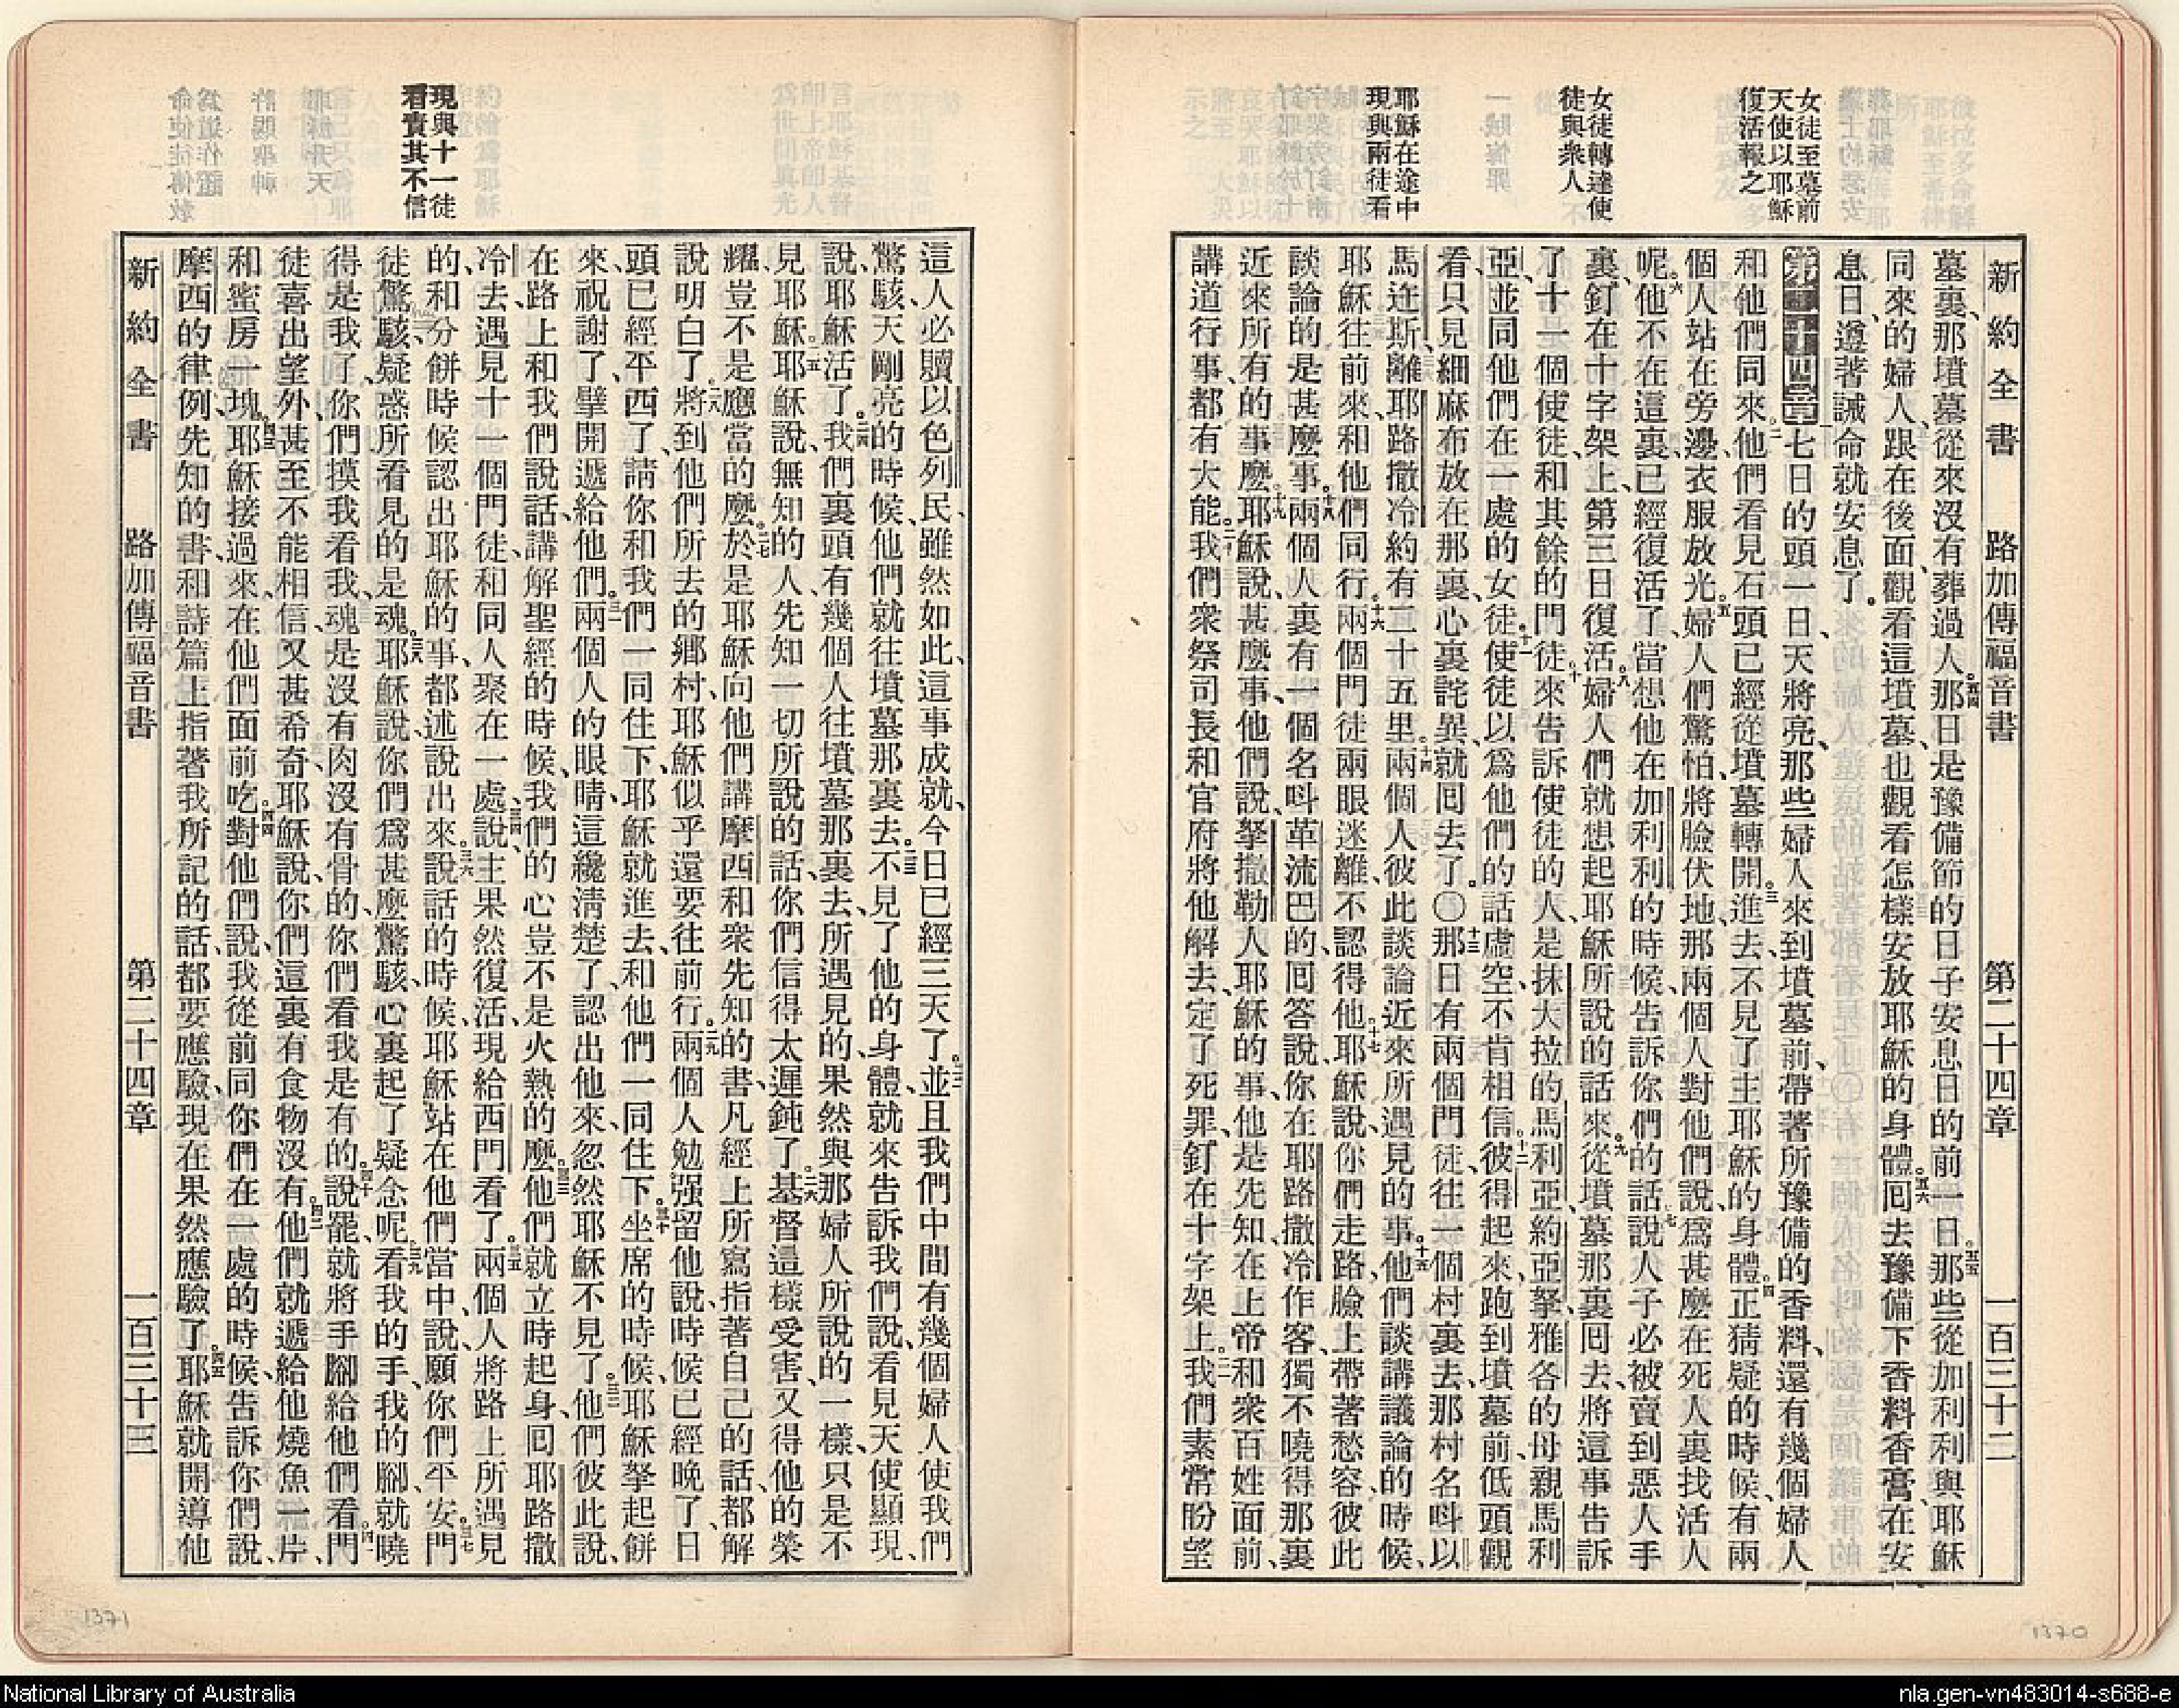 新約全書 路加傳福音書 第二十四章 一百三十二
女徒至墓前
天使以耶穌
復活報之
女徒轉達使
徒與衆人
耶穌在途中
現與兩徒看
墓裏、那墳墓從來沒有葬過人。五四那日是豫備節的日子安息日的前一日。五五那些從加利利與耶穌
同來的婦人、跟在後面、觀看這墳墓、也觀看怎樣安放耶穌的身體。五六囘去豫備下香料香膏、在安
息日、遵著誡命就安息了。
第二十四章 一七日的頭一日、天將亮、那些婦人來到墳墓前、帶著所豫備的香料、還有幾個婦人
和他們同來、二他們看見石頭已經從墳墓轉開。三進去、不見了主耶穌的身體。四正猜疑的時候、有兩
個人站在旁邊、衣服放光。五婦人們驚怕、將臉伏地、那兩個人對他們說、爲甚麼在死人裏找活人
呢。六他不在這裏、已經復活了、當想他在加利利的時候、告訴你們的話、七說人子必被賣到惡人手
裏、釘在十字架上、第三日復活。八婦人們就想起耶穌所說的話來。九從墳墓那裏囘去、將這事告訴
了十一個使徒、和其餘的門徒。十來告訴使徒的人、是抹大拉的馬利亞、約亞拏、雅各的母親馬利
亞、並同他們在一處的女徒。十一使徒以爲他們的話虛空、不肯相信。十二彼得起來、跑到墳墓前、低頭觀
看、只見細麻布放在那裏、心裏詫異、就囘去了。〇十三那日有兩個門徒、往一個村裏去、那村名呌以
馬迕斯、離耶路撒冷約有二十五里。十四兩個人彼此談論近來所遇見的事。十五他們談講議論的時候、
耶穌往前來、和他們同行。十六兩個門徒兩眼迷離、不認得他。十七耶穌說、你們走路、臉上帶著愁容、彼此
談論的是甚麼事。十八兩個人裏有一個名呌革流巴的、囘答說、你在耶路撒冷作客、獨不曉得那裏
近來所有的事麼。十九耶穌說、甚麼事、他們說、拏撒勒人耶穌的事、他是先知、在上帝和衆百姓面前、
講道行事、都有大能。二十我們衆祭司長和官府將他解去、定了死罪、釘在十字架上。二一我們素常盼望
現與十一徒
看責其不信
這人必贖以色列民、雖然如此、這事成就、今日已經三天了。二二並且我們中間有幾個婦人使我們
驚駭、天剛亮的時候、他們就往墳墓那裏去。二三不見了他的身體、就來告訴我們說、看見天使顯現、
說、耶穌活了。二四我們裏頭有幾個人往墳墓那裏去、所遇見的、果然與那婦人所說的一樣、只是不
見耶穌。二五耶穌說、無知的人、先知一切所說的話、你們信得太遲鈍了。二六基督這樣受害、又得他的榮
耀、豈不是應當的麼。二七於是耶穌向他們講摩西和衆先知的書、凡經上所寫指著自己的話、都解
說明白了。二八將到他們所去的鄉村、耶穌似乎還要往前行。二九兩個人勉强留他說、時候已經晚了、日
頭已經平西了、請你和我們一同住下、耶穌就進去、和他們一同住下。三十坐席的時候、耶穌拏起餅
來、祝謝了、擘開遞給他們。三一兩個人的眼睛這纔淸楚了、認出他來、忽然耶穌不見了。三二他們彼此說、
在路上和我們說話、講解聖經的時候、我們的心豈不是火熱的麼。三三他們就立時起身、囘耶路撒
冷去、遇見十一個門徒、和同人聚在一處、三四說、主果然復活、現給西門看了。三五兩個人將路上所遇見
的、和分餅時候認出耶穌的事、都述說出來。三六說話的時候、耶穌站在他們當中、說、願你們平安。三七門
徒驚駭、疑惑所看見的是魂。三八耶穌說、你們爲甚麼驚駭、心裏起了疑念呢。三九看我的手、我的腳、就曉
得是我了、你們摸我看我、魂是沒有肉沒有骨的、你們看我是有的。四十說罷、就將手腳給他們看。四一門
徒喜出望外、甚至不能相信、又甚希奇、耶穌說、你們這裏有食物沒有。四二他們就遞給他燒魚一片、
和蜜房一塊。四三耶穌接過來、在他們面前吃。四四對他們說、我從前同你們在一處的時候、告訴你們說、
摩西的律例、先知的書、和詩篇上指著我所記的話、都要應驗、現在果然應驗了。四五耶穌就開導他
新約全書 路加傳福音書 第二十四章 一百三十三
1371
1370
National Library of Australia
nla.gen-vn483014-s688-e